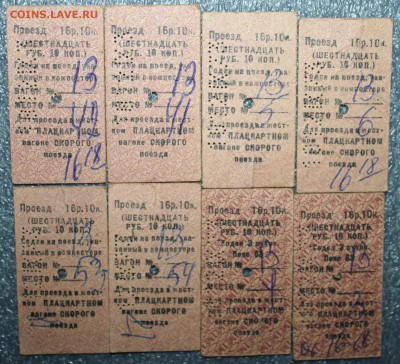 COINS.LAVE.RU
Проезд 16р.10к.
(ШЕСТНАДЦАТЬ
РУБ. 10 КОП.)
Годен на поезд, ука-
занный в компостере
ВАГОН № 13
МЕСТО №
Для проезда в жест-
ком ПЛАЦКАРТНОМ
вагоне СКОРОГО
поезда
16 18
Проезд 16р.10к.
(ШЕСТНАДЦАТЬ
РУБ. 10 КОП.)
Годен на поезд, ука-
занный в компостере
ВАГОН № 13
МЕСТО №
Для проезда в жест-
ком ПЛАЦКАРТНОМ
вагоне СКОРОГО
поезда
Проезд 16р.10к.
(ШЕСТНАДЦАТЬ
РУБ. 10 КОП.)
Годен на поезд, ука-
занный в компостере
ВАГОН № 13
МЕСТО № 5
Для проезда в жест-
ком ПЛАЦКАРТНОМ
вагоне СКОРОГО
поезда
Проезд 16р.10к.
(ШЕСТНАДЦАТЬ
РУБ. 10 КОП.)
Годен на поезд, ука-
занный в компостере
ВАГОН № 13
МЕСТО № 6
Для проезда в жест-
ком ПЛАЦКАРТНОМ
вагоне СКОРОГО
поезда
16 18
Проезд 16р.10к.
(ШЕСТНАДЦАТЬ
РУБ. 10 КОП.)
Годен на поезд, ука-
занный в компостере
ВАГОН №
МЕСТО № 53
Для проезда в жест-
ком ПЛАЦКАРТНОМ
вагоне СКОРОГО
поезда
Проезд 16р.10к.
(ШЕСТНАДЦАТЬ
РУБ. 10 КОП.)
Годен на поезд, ука-
занный в компостере
ВАГОН №
МЕСТО № 54
Для проезда в жест-
ком ПЛАЦКАРТНОМ
вагоне СКОРОГО
поезда
Проезд 16р.10к.
(ШЕСТНАДЦАТЬ
РУБ. 10 КОП.)
Годен 3 суток
ВАГОН №
МЕСТО №
Для проезда в жест-
ком ПЛАЦКАРТНОМ
вагоне СКОРОГО
поезда
Проезд 16р.10к.
(ШЕСТНАДЦАТЬ
РУБ. 10 КОП.)
Годен 3 суток
ВАГОН №
МЕСТО №
Для проезда в жест-
ком ПЛАЦКАРТНОМ
вагоне СКОРОГО
поезда